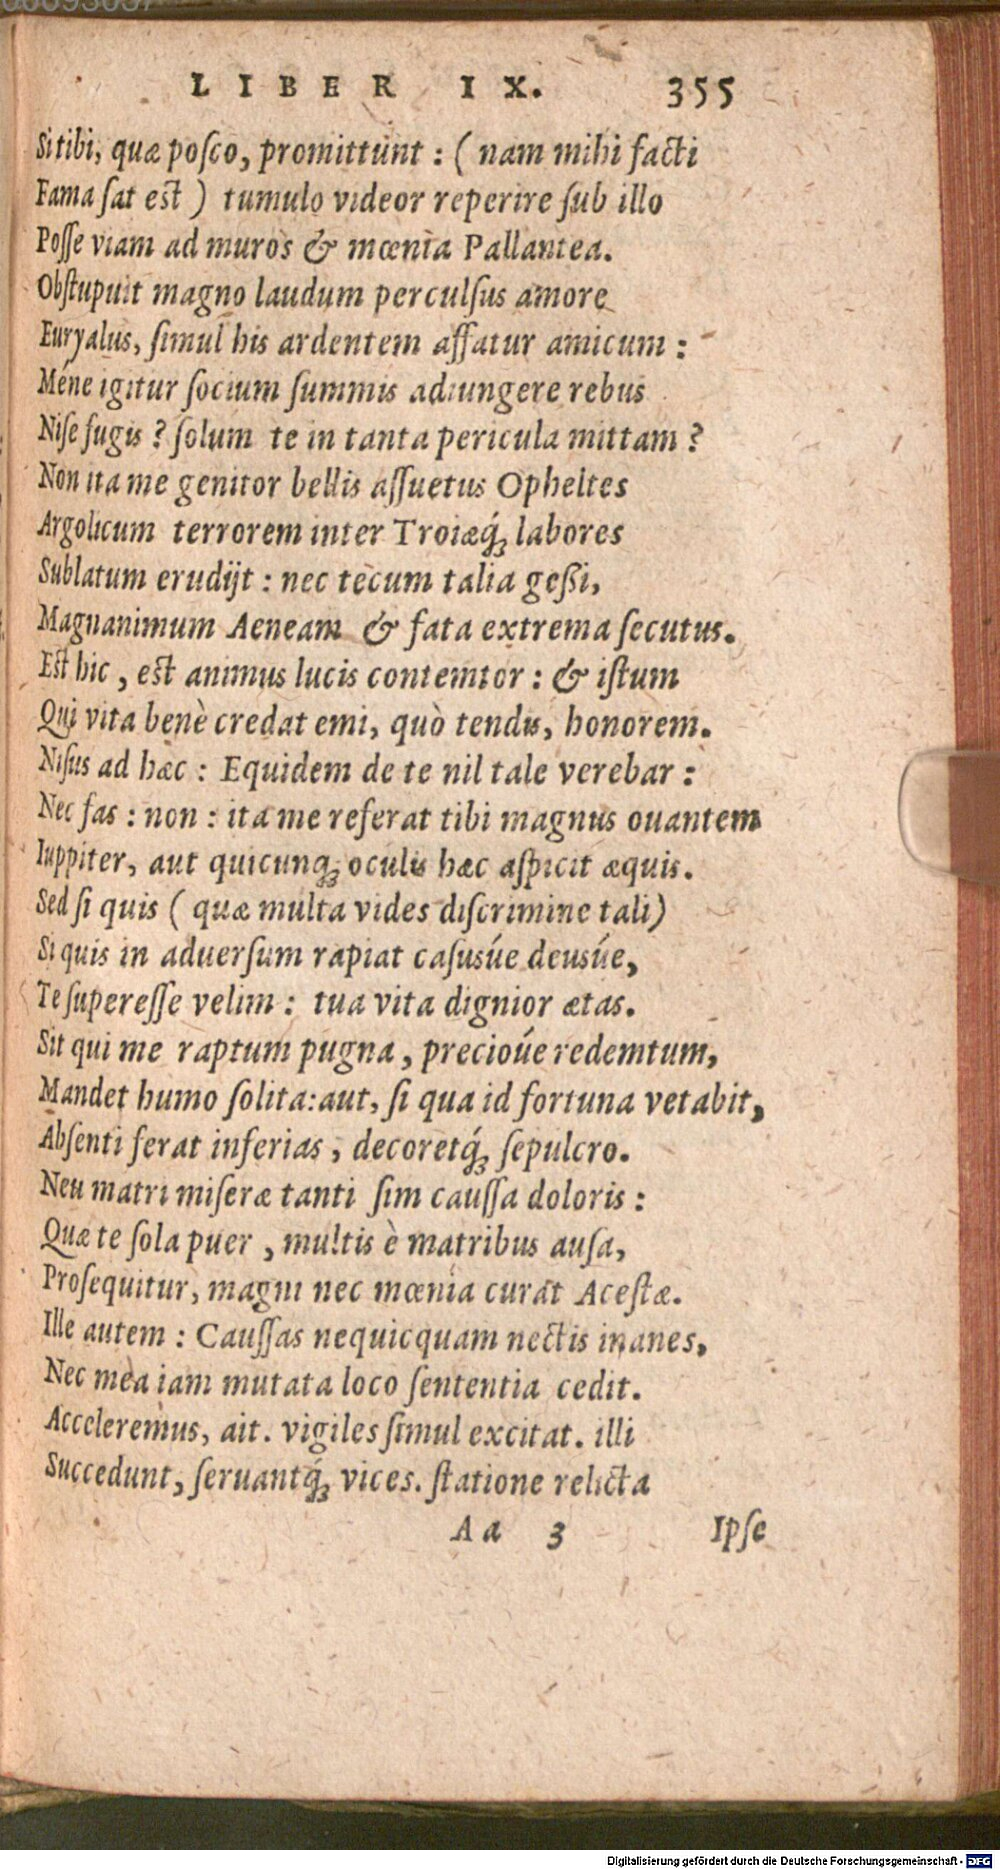 LIBER IX. 355
Si tibi, quæ posco, promittunt : ( nam mihi facti
Fama sat est ) tumulo videor reperire sub illo
Posse viam ad muros & mœnia Pallantea.
Obstupuit magno laudum perculsus amore
Euryalus, simul his ardentem affatur amicum :
Méne igitur socium summis adiungere rebus
Nise fugis ? solum te in tanta pericula mittam ?
Non ita me genitor bellis assuetus Opheltes
Argolicum terrorem inter Troiæq́; labores
Sublatum erudijt : nec tecum talia geßi,
Magnanimum Aeneam & fata extrema secutus.
Est hic, est animus lucis contemtor : & istum
Qui vita benè credat emi, quò tendis, honorem.
Nisus ad hæc : Equidem de te nil tale verebar :
Nec fas : non : ita me referat tibi magnus ouantem
Iuppiter, aut quicunq; oculis hæc aspicit æquis.
Sed si quis ( quæ multa vides discrimine tali)
Si quis in aduersum rapiat casusúe deusúe,
Te superesse velim : tua vita dignior ætas.
Sit qui me raptum pugna, precioúe redemtum,
Mandet humo solita: aut, si qua id fortuna vetabit,
Absenti ferat inferias, decoretq́; sepulcro.
Neu matri miseræ tanti sim caussa doloris :
Quæ te sola puer, multis è matribus ausa,
Prosequitur, magni nec mœnia curat Acestæ.
Ille autem : Caussas nequicquam nectis inanes,
Nec mea iam mutata loco sententia cedit.
Acceleremus, ait. vigiles simul excitat. illi
Succedunt, seruantq́; vices. statione relicta
Aa 3 Ipse
Digitalisierung gefördert durch die Deutsche Forschungsgemeinschaft - DFG